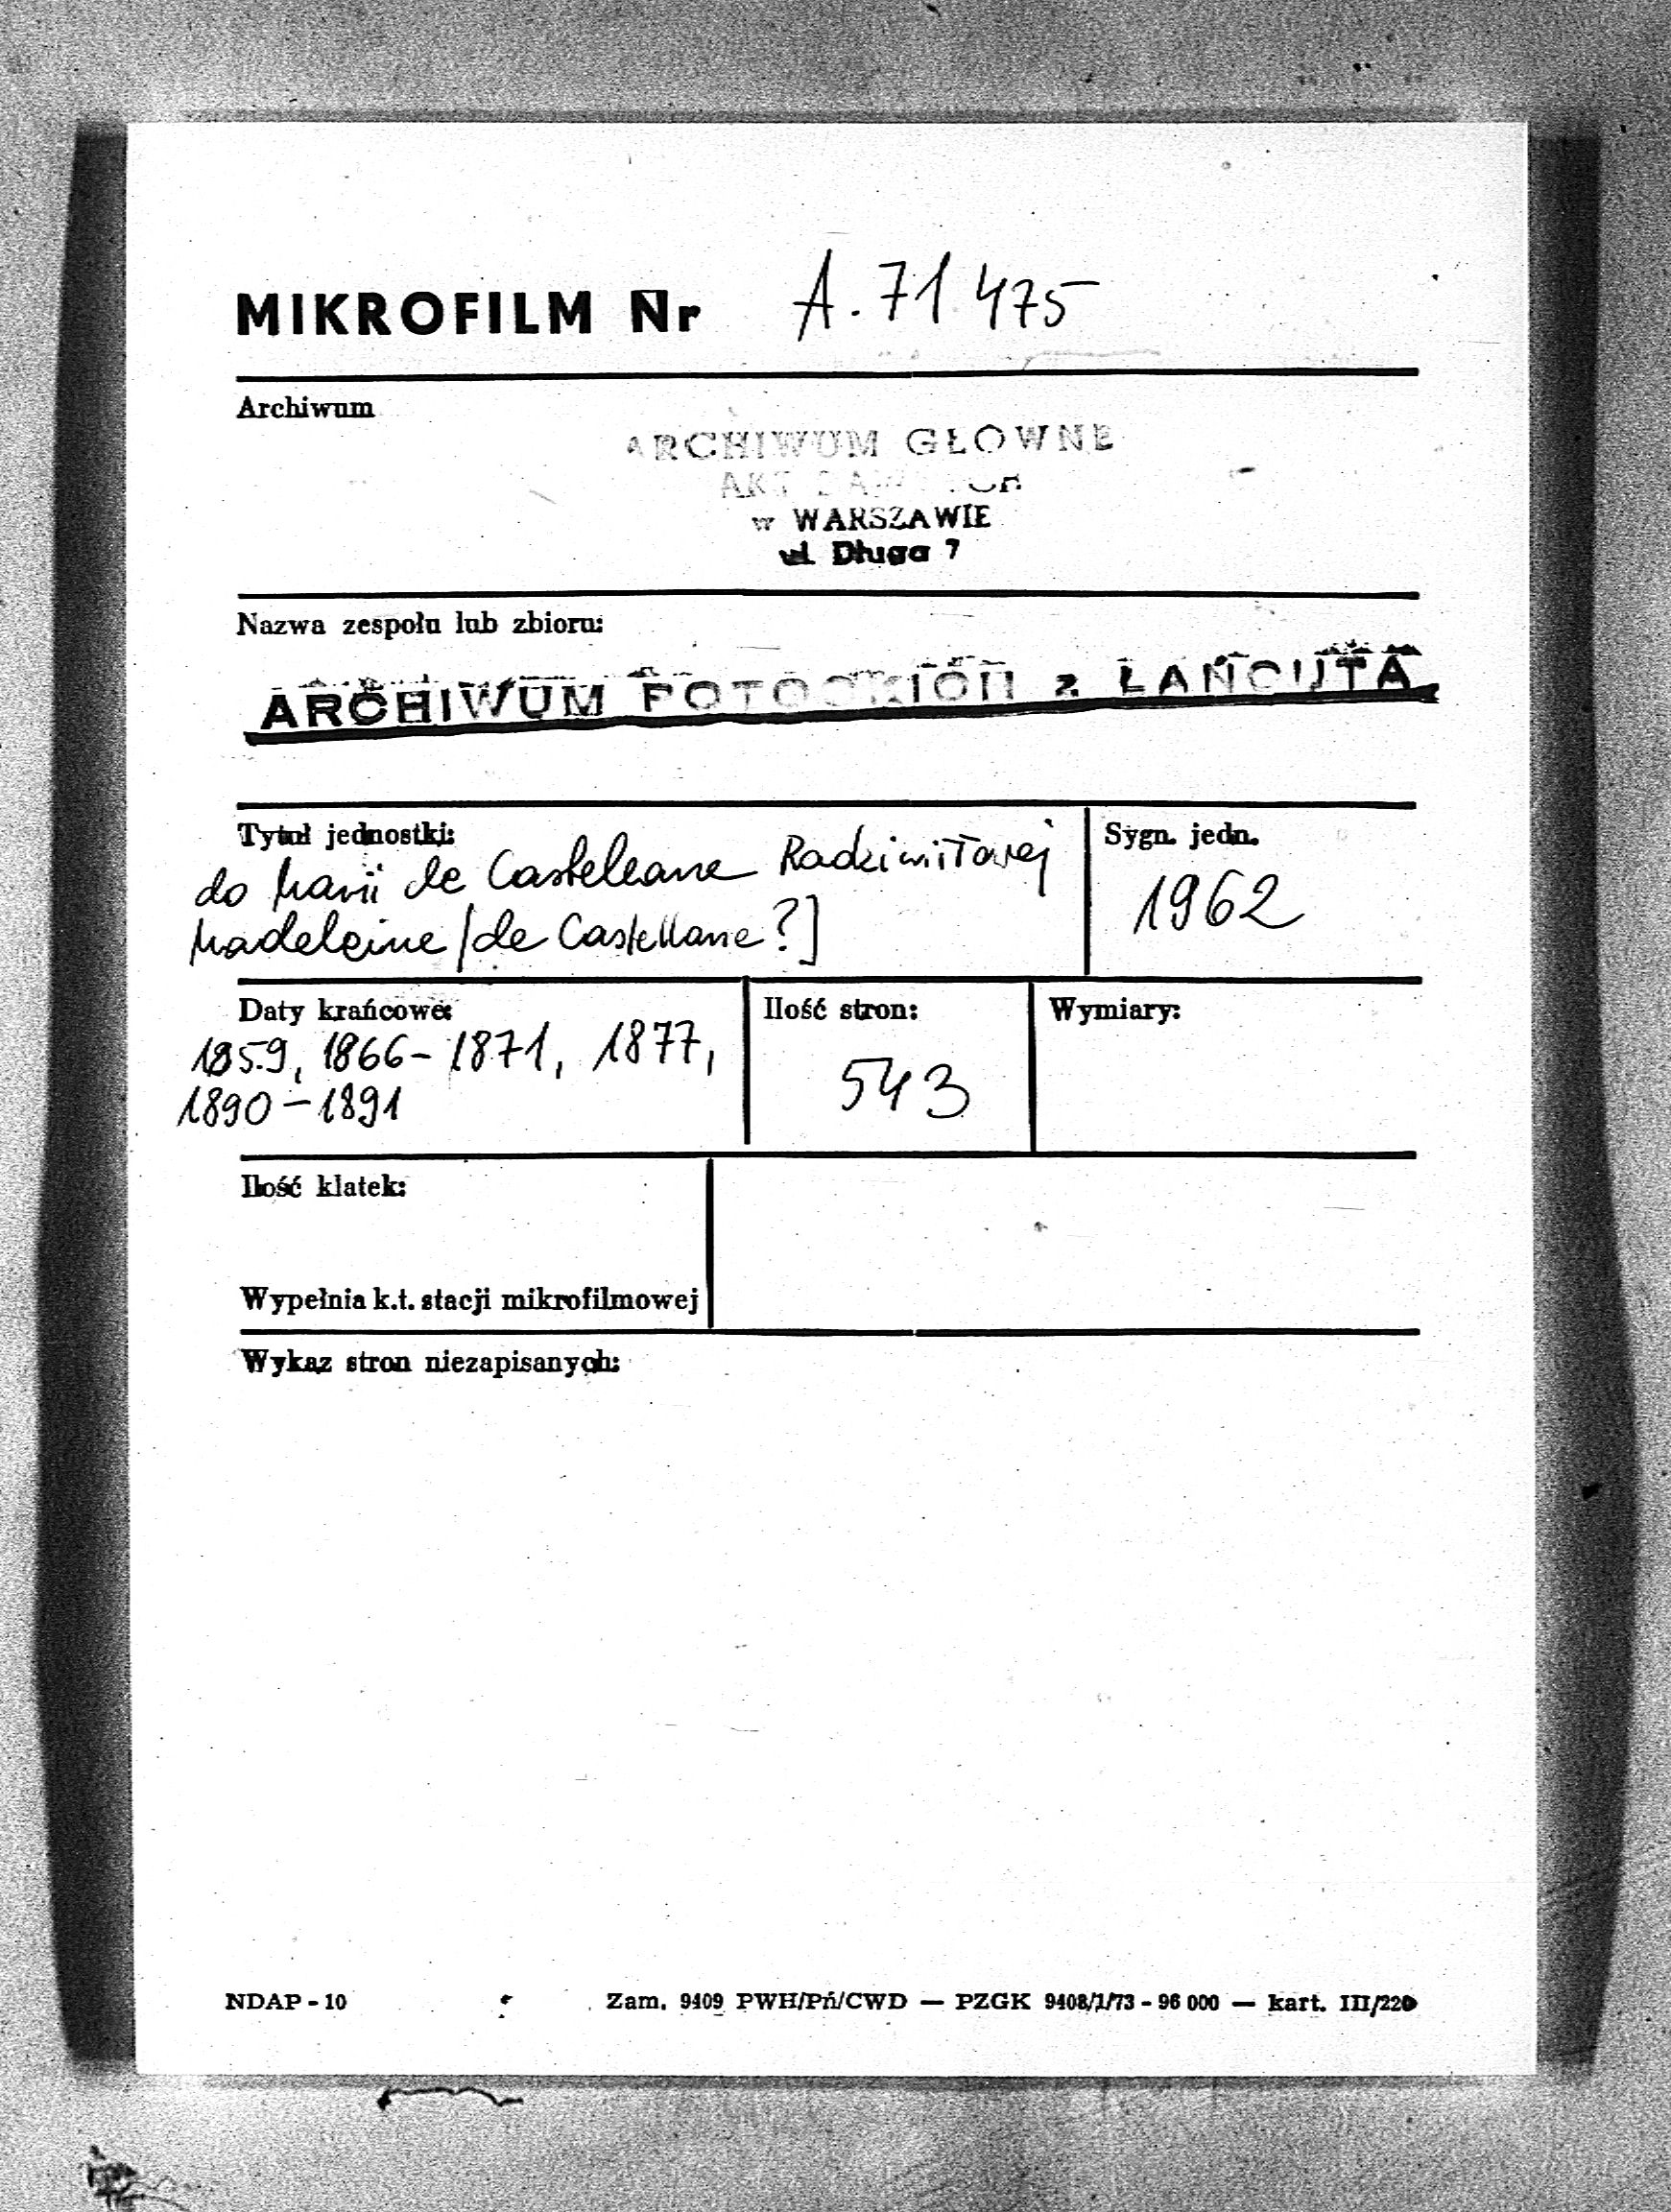 MIKROFILM Nr A. 71 475
Archiwum
ARCHIWUM GŁOWNE
AKT
w WARSZAWIE
ul. Długa 7
Nazwa zespołu lub zbioru:
ARCHIWUM POTOCKICH z ŁAŃCUTA
Tytuł jednostki:
do Marii de Castellane Radziwiłłowej
Madeleine [de Castellane?]
Sygn. jedn.
1962
Daty krańcowe:
1859, 1866-1871, 1877,
1890-1891
Ilość stron:
543
Wymiary:
Ilość klatek:
Wypełnia k.t. stacji mikrofilmowej
Wykaz stron niezapisanych:
NDAP - 10 Zam. 9409 PWH/Pń/CWD — PZGK 9408/1/73 - 96 000 — kart. III/220